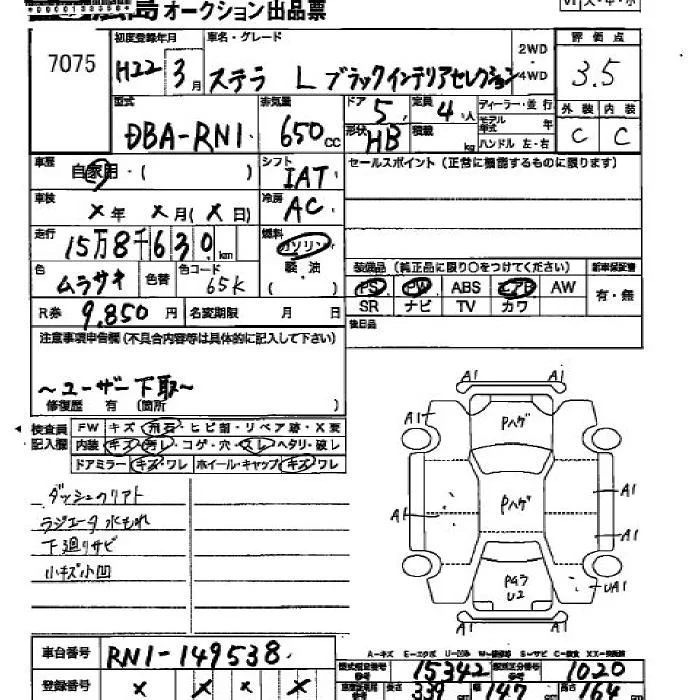 島 オークション出品票
7075
初度登録年月
H22 3月
車名・グレード
ステラ L ブラックインテリアセレクション
2WD
4WD
評価点
3.5
型式
DBA-RN1
排気量
650 CC
ドア
5
定員
4人
形状
HB
積載
kg
ディーラー・並行
モデル年式 年
ハンドル 左・右
外装 内装
C C
車歴
自家用・( )
シフト
IAT
セールスポイント (正常に機能するものに限ります)
車検
×年 ×月(×日)
冷房
AC
走行
15万8千630km
燃料
ガソリン
軽油
( )
色
ムラサキ
色替
色コード
65K
装備品 (純正品に限り○をつけてください)
新車保証書
PS PW ABS エアB AW
有・無
SR ナビ TV カワ
後日品
R券 9,850円
名変期限 月 日
注意事項申告欄 (不具合内容等は具体的に記入して下さい)
〜ユーザー下取〜
修復歴 有 (箇所 )
検査員記入欄
FW キズ・飛石・ヒビ割・リペア跡・X要
内装 キズ・汚レ・コゲ・穴・スレ・ヘタリ・破レ
ドアミラー キズ・ワレ ホイール・キャップ キズ・ワレ
ダッシュクリアト
ラジエータ水もれ
下廻りサビ
小キズ小凹
A1 A1
A1
Pハゲ
A1
Pハゲ
A1
A1
Pハラ
U2
UA1
A1 A1
車台番号
RN1-149538
登録番号
× × × ×
型式指定番号
15342
類別区分番号
1020
長さ 339 幅 147 高さ 164